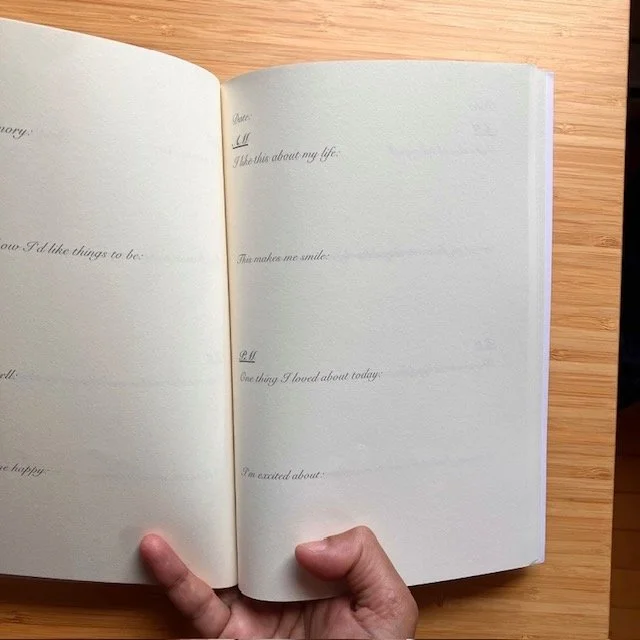 how I'd like things to be:
Date:
AM
I like this about my life:
This makes me smile:
P.M
One thing I loved about today:
I'm excited about: